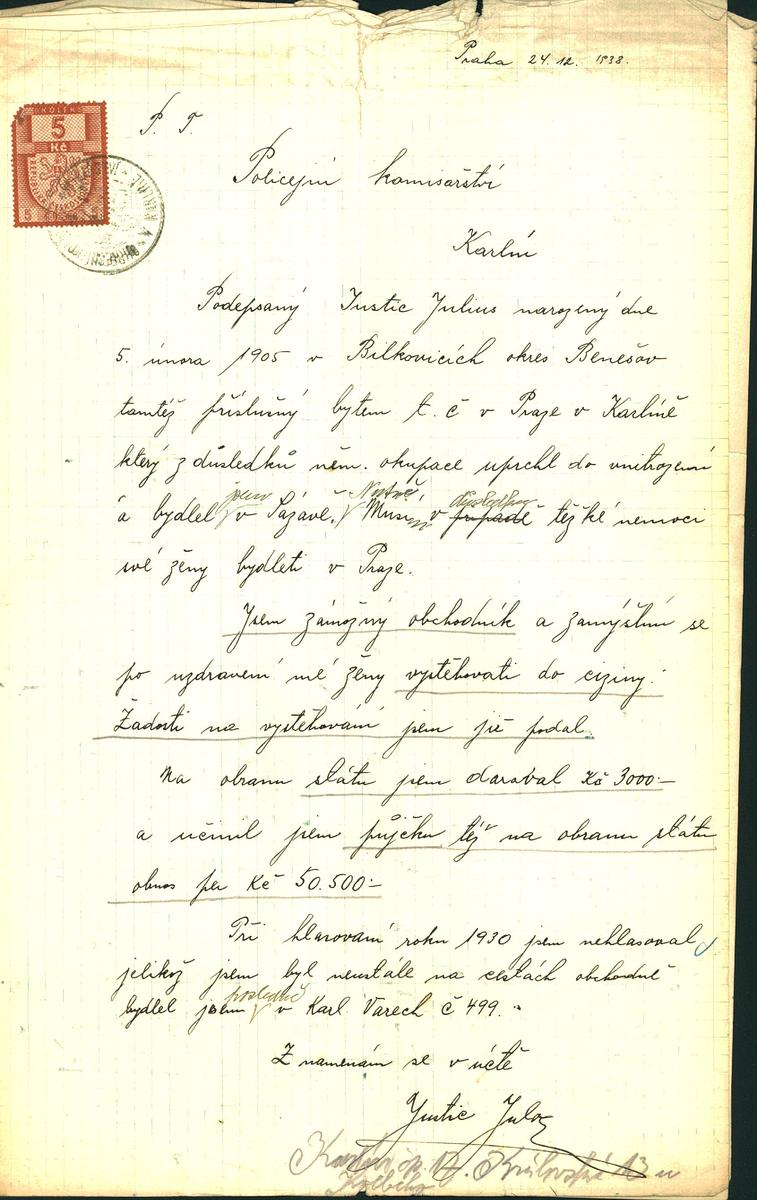 Praha 24. 12. 1938.
KOLEK
5
Kč
5
P. T.
Policejní komisařství
Karlín
Podepsaný Justic Julius narozený dne
5. února 1905 v Bilkovicích okres Benešov
tamtéž příslušný bytem t. č v Praze v Karlíně
který z důsledků něm. okupace uprchl do vnitrozemí
jsem
důsledkem
a bydlel v Sázavě. Musí v případě těžké nemoci
své ženy bydleti v Praze.
Jsem zámožný obchodník a zamýšlím se
po uzdravení mé ženy vystěhovati do ciziny.
Žádosti na vystěhování jsem již podal.
Na obranu státu jsem daroval Kč 3000.-
a učinil jsem půjčku též na obranu státu
obnos per Kč 50.500-
Při hlasování roku 1930 jsem nehlasoval
jelikož jsem byl neustále na cestách obchodně
posledně
bydlel jsem v Karl. Varech č 499.-
Znamenám se v úctě
Justic Julo
Karlín Královská 13